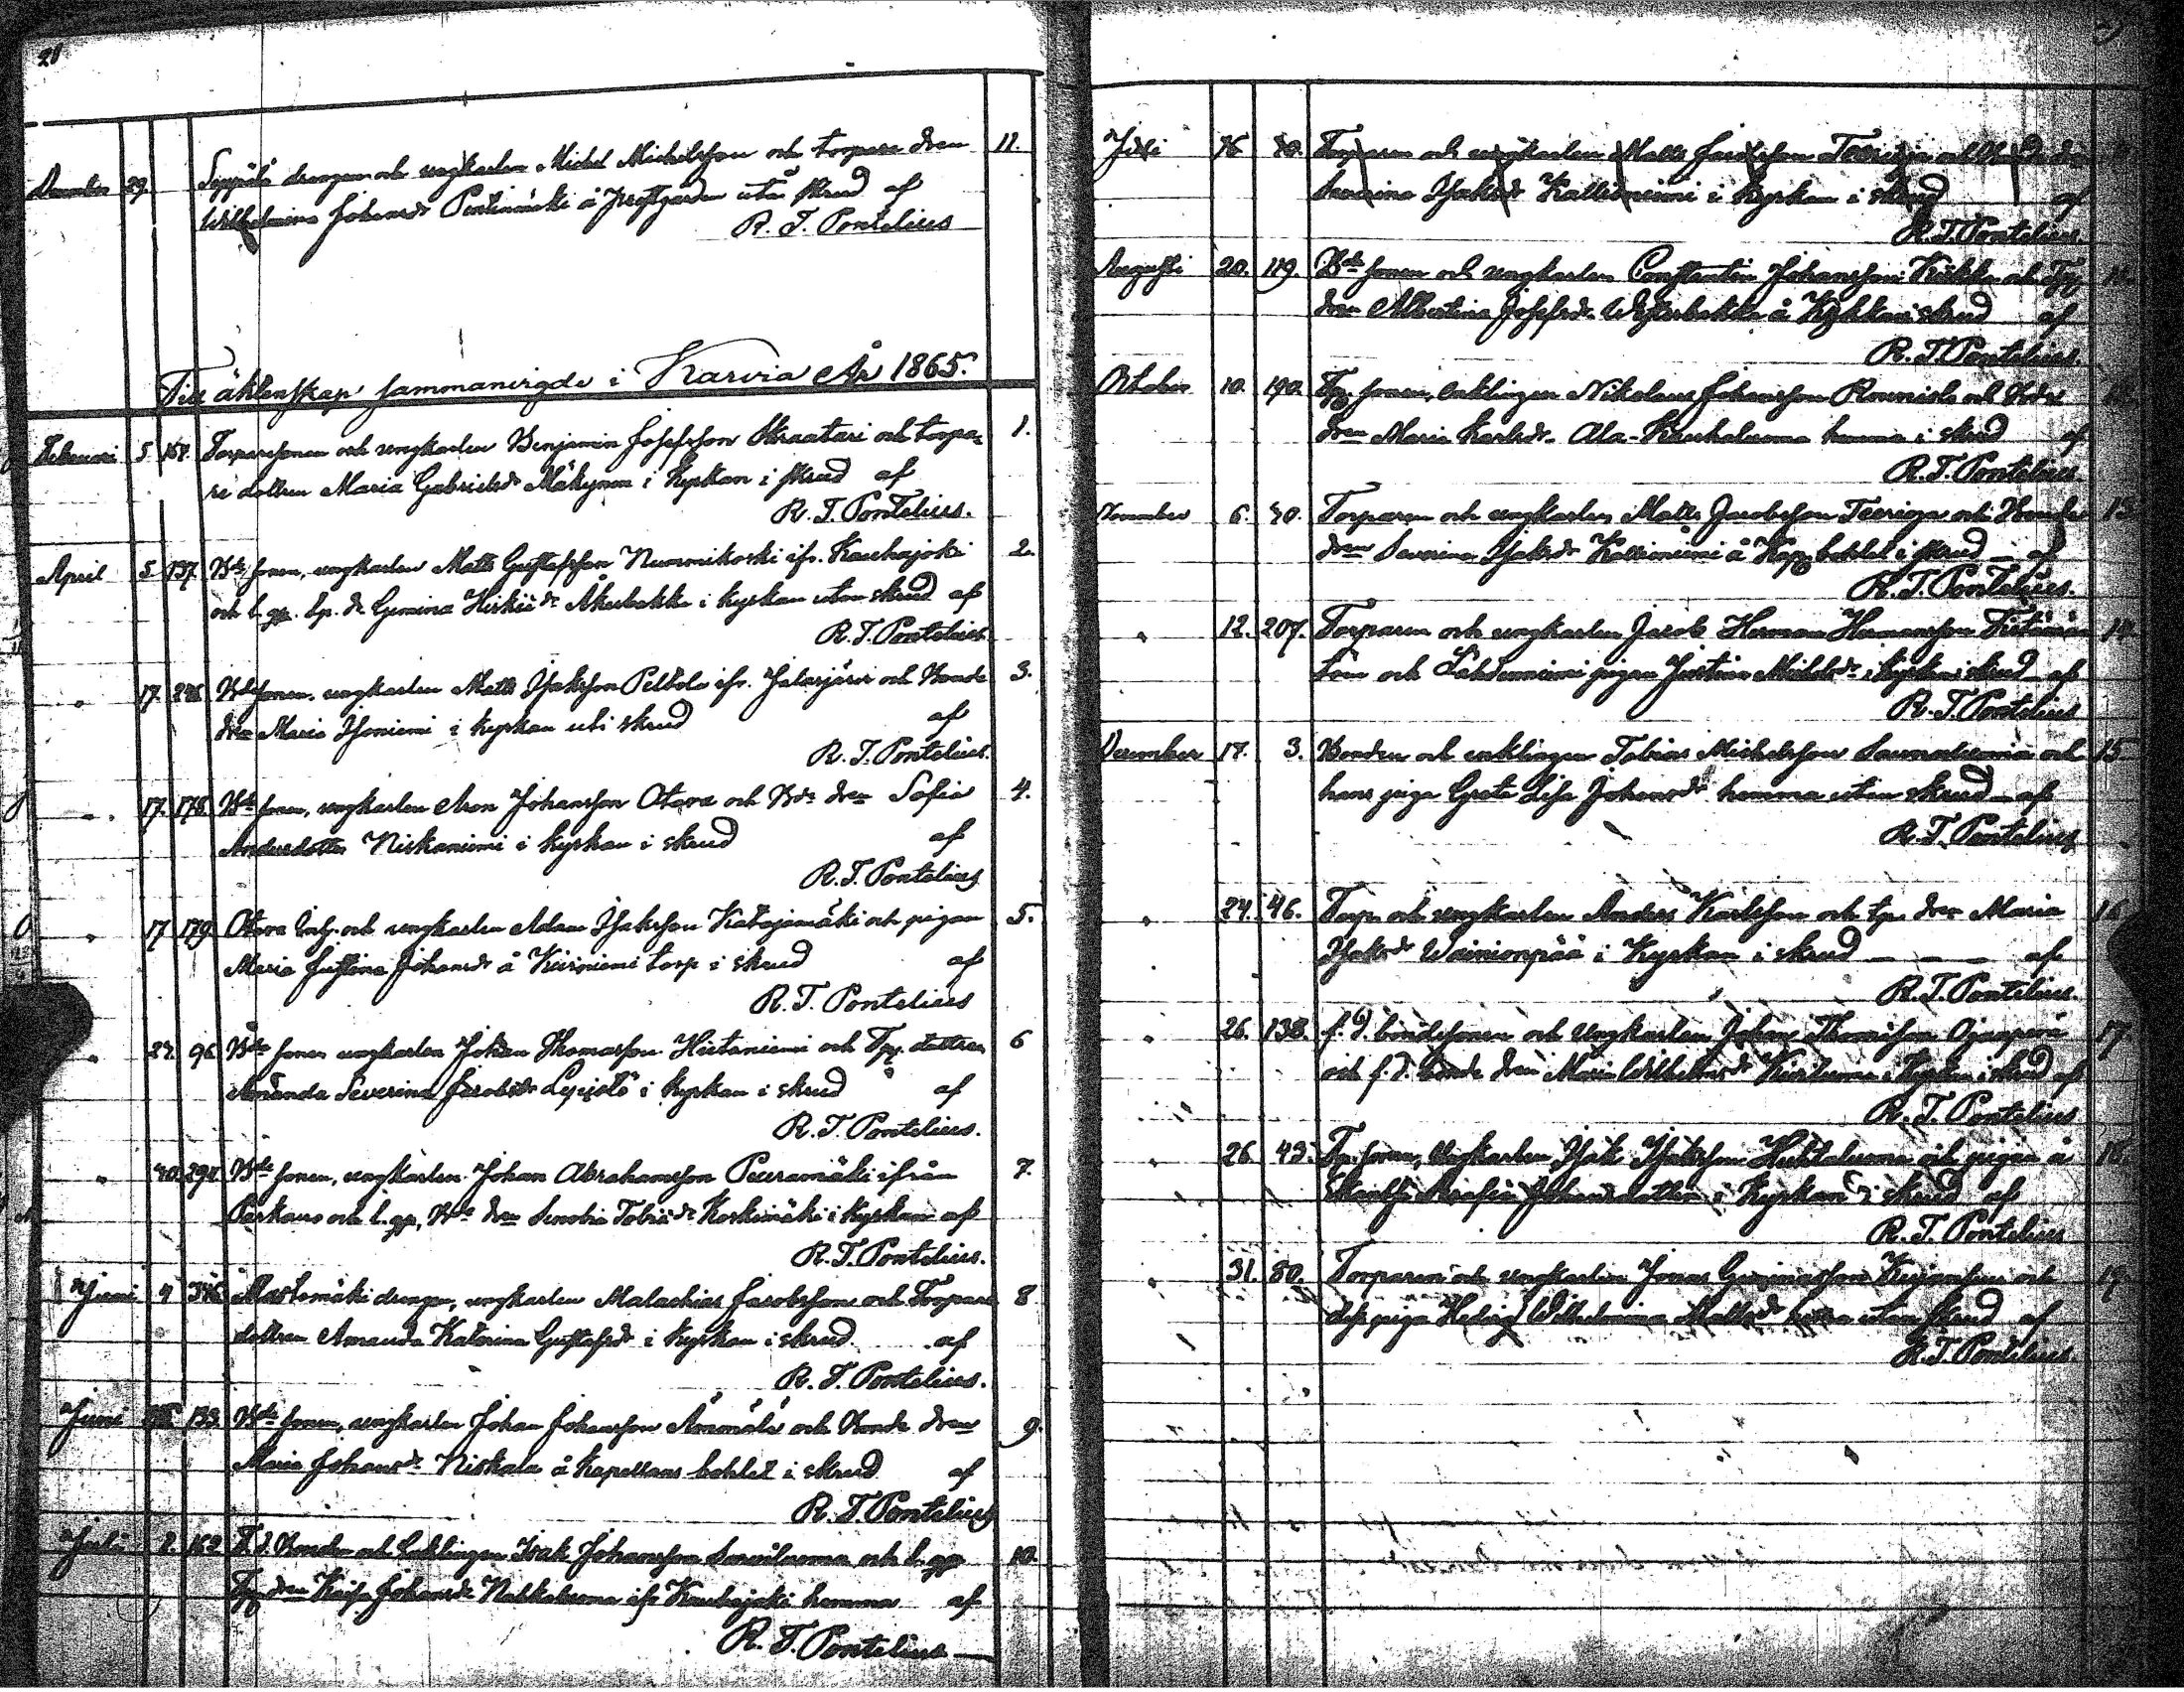 28
December 29. Seppälä drengen och ungkarlen Michel Michelsson och torpare dren 11
Wilhelmina Johansdr Pentinmäki å Prestgården utan skrud af
R. T. Pontelius
Till äktenskap sammanvigde i Karvia År 1865.
Februari 5 Torparesonen och ungkarlen Benjamin Josefsson Skraatari och torpa= 1.
re dottren Maria Gabrielsdr Mäkynen i Kyrkan i skrud af
R. T. Pontelius.
April 5 137. Bde sonen, ungkarlen Matts Gustafsson Nummikoski ifr. Kauhajoki 2.
och l. gp. dr Gemina Åkerbakka i kyrkan utan skrud af
R. T. Pontelius.
" 17. Bde sonen, ungkarlen Matts Isaksson Peltola ifr. Jalasjärvi och Bonde 3.
dren Maria Isoniemi i kyrkan uti skrud af
R. T. Pontelius.
" 17. 178. Bde sonen, ungkarlen Aron Johansson Otava och Bde dren Sofia 4.
Andersdotter Niskaniemi i kyrkan i skrud af
R. T. Pontelius
" 17 179. Otava Inh. och ungkarlen Adam Isaksson Katajamäki och pigan 5.
Maria Justina Johansdr å Kiirniemi torp i skrud af
R. T. Pontelius
" 96. Bde sonen ungkarlen Johan Thomasson Hietaniemi och Tp. dottren 6
Amanda Severina Jacobsdr i kyrkan i skrud af
R. T. Pontelius.
" 291. Bde sonen, ungkarlen Johan Abrahamsson Peuramäki ifrån 7.
Parkano och l. gp. Bde dren Senobia Tobiædr Koskimäki i Kyrkan af
R. T. Pontelius.
Juni 4 Mustomäki drengen, ungkarlen Malachias Jacobsson och Torpare 8
dottren Amanda Katarina Gustafsdr i Kyrkan i skrud af
R. T. Pontelius.
Juni 133. Bde sonen, ungkarlen Johan Johansson Ämmälä och Bonde dren 9.
Maria Johansdr Niskala å Kapellans bohlet i skrud af
R. T. Pontelius
Juli 2. 162 F. d. Bonden och Enklingen Isak Johansson och l. gp 10.
Tp dren Kaisa Johansdr ifr Kauhajoki hemma af
R. T. Pontelius
Juli 16 70. Torparen och ungkarlen Matts Jacobsson Teerioja och Bonde dren
Severina Isaksdr Kallioniemi i Kyrkan i skrud af
R. T. Pontelius.
Augusti 20. 119. Bde sonen och ungkarlen Constantin Johansson och Tp 11.
dren Albertina Josefsdr Westerbakka å i skrud af
R. T. Pontelius.
October 10. 190. Tp. sonen, enklingen Nikolaus Johansson Rounisla och Bonde 12.
dren Maria Karlsdr Ala-Kauhaluoma hemma i skrud af
R. T. Pontelius.
November 6. 70. Torparen och ungkarlen Matts Jacobsson Teerioja och Bonde 13.
dren Severina Isaksdr Kallioniemi å Kap. bohlet i skrud — af
R. T. Pontelius.
" 12. 207. Torparen och ungkarlen Jacob Herman Hermansson 14.
och Lahdenniemi pigan Justina Michelsdr i kyrkan i skrud — af
R. T. Pontelius
December 17. 3. Bonden och enklingen Tobias Michelsson Saunaluoma och 15
hans piga Greta Lisa Johansdr hemma utan skrud — af
R. T. Pontelius
" 24. 46. Torp. och ungkarlen Anders Karlsson och tp. dren Maria 16
Isaksdr Wainionpää i Kyrkan i skrud — — — af
R. T. Pontelius.
" 26. 138. f. d. bondesonen och Ungkarlen Johan Thomasson Ojanperä 17
och f. d. bonde dren Maria Wilhelmsdr i Kyrkan i skrud af
R. T. Pontelius
" 26. 43. Tp. sonen, Ungkarlen Isak Isaksson Huhtaluoma och pigan å 18.
Serafia Johansdotter i Kyrkan i skrud af
R. T. Pontelius
" 31. 80. Torparen och ungkarlen Jonas och 19.
dess piga Hedvig Wilhelmina Mattsdr hemma utan skrud af
R. T. Pontelius.